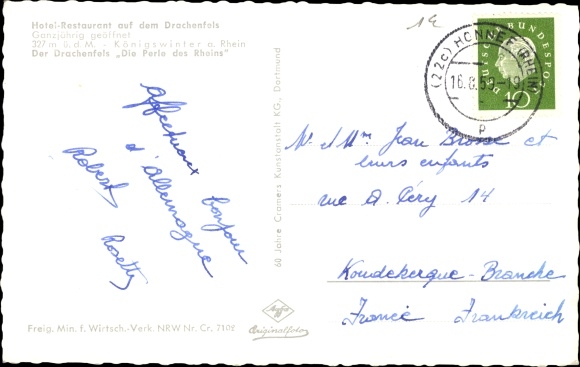 Hotel-Restaurant auf dem Drachenfels
Ganzjährig geöffnet
327 m ü. d. M. - Königswinter a. Rhein
Der Drachenfels „Die Perle des Rheins"
Affectueux bonjour
d'Allemagne
Robert Rosetty
60 Jahre Cramers Kunstanstalt KG., Dortmund
Agfa
Originalfoto
Freig. Min. f. Wirtsch.-Verk. NRW Nr. Cr. 7102
1€
DEUTSCHE BUNDESPOST
10
(22c) HONNEF (RHEIN)
16.8.59-19
p
Mr et Mme Jean Brosse et
leurs enfants
rue A. Géry 14
Koudekerque-Branche
France Frankreich